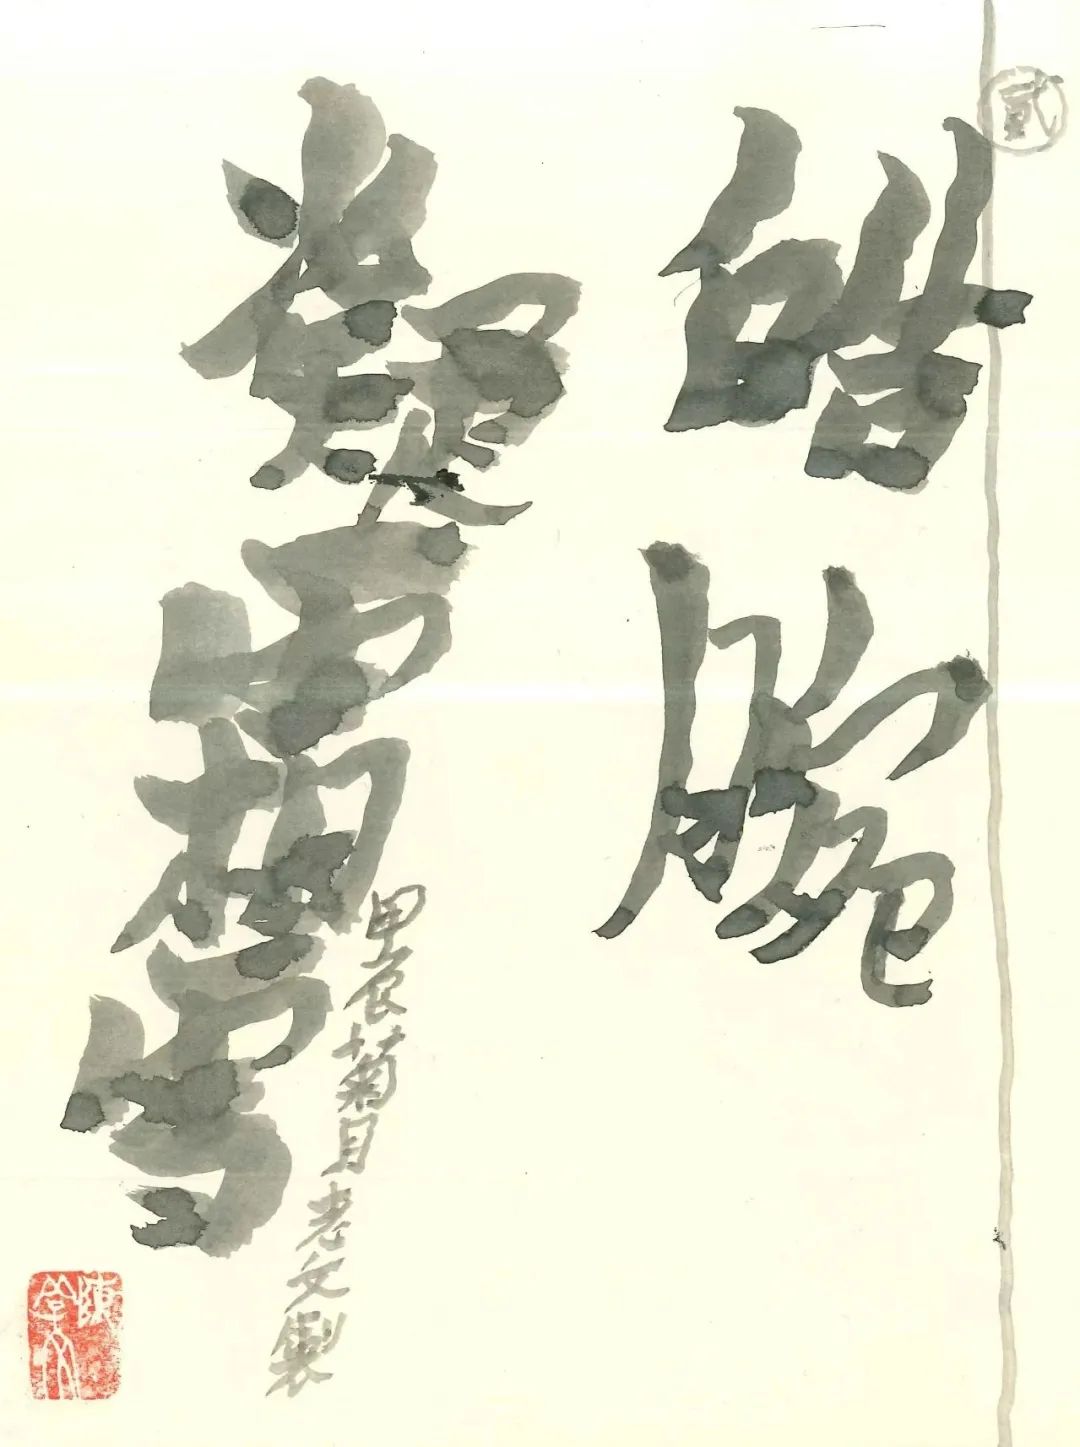 貳
皓腕
凝霜雪
甲辰菊月老文製
陳学文